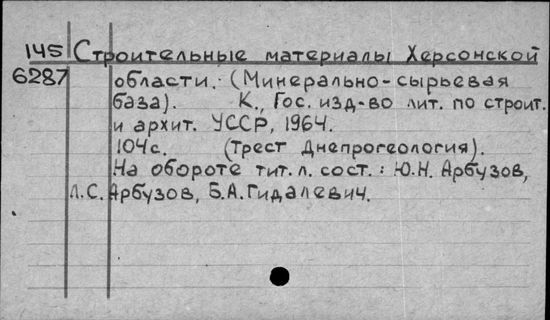 145 Строительные материалы Херсонской
6287 области. (Минерально-сырьевая
база). К., Гос. изд-во лит. по строит.
и архит. УССР, 1964.
104с. (трест Днепрогеология).
На обороте тит. л. сост.: Ю.Н. Арбузов,
Л.С. Арбузов, Б.А. Гидалевич.